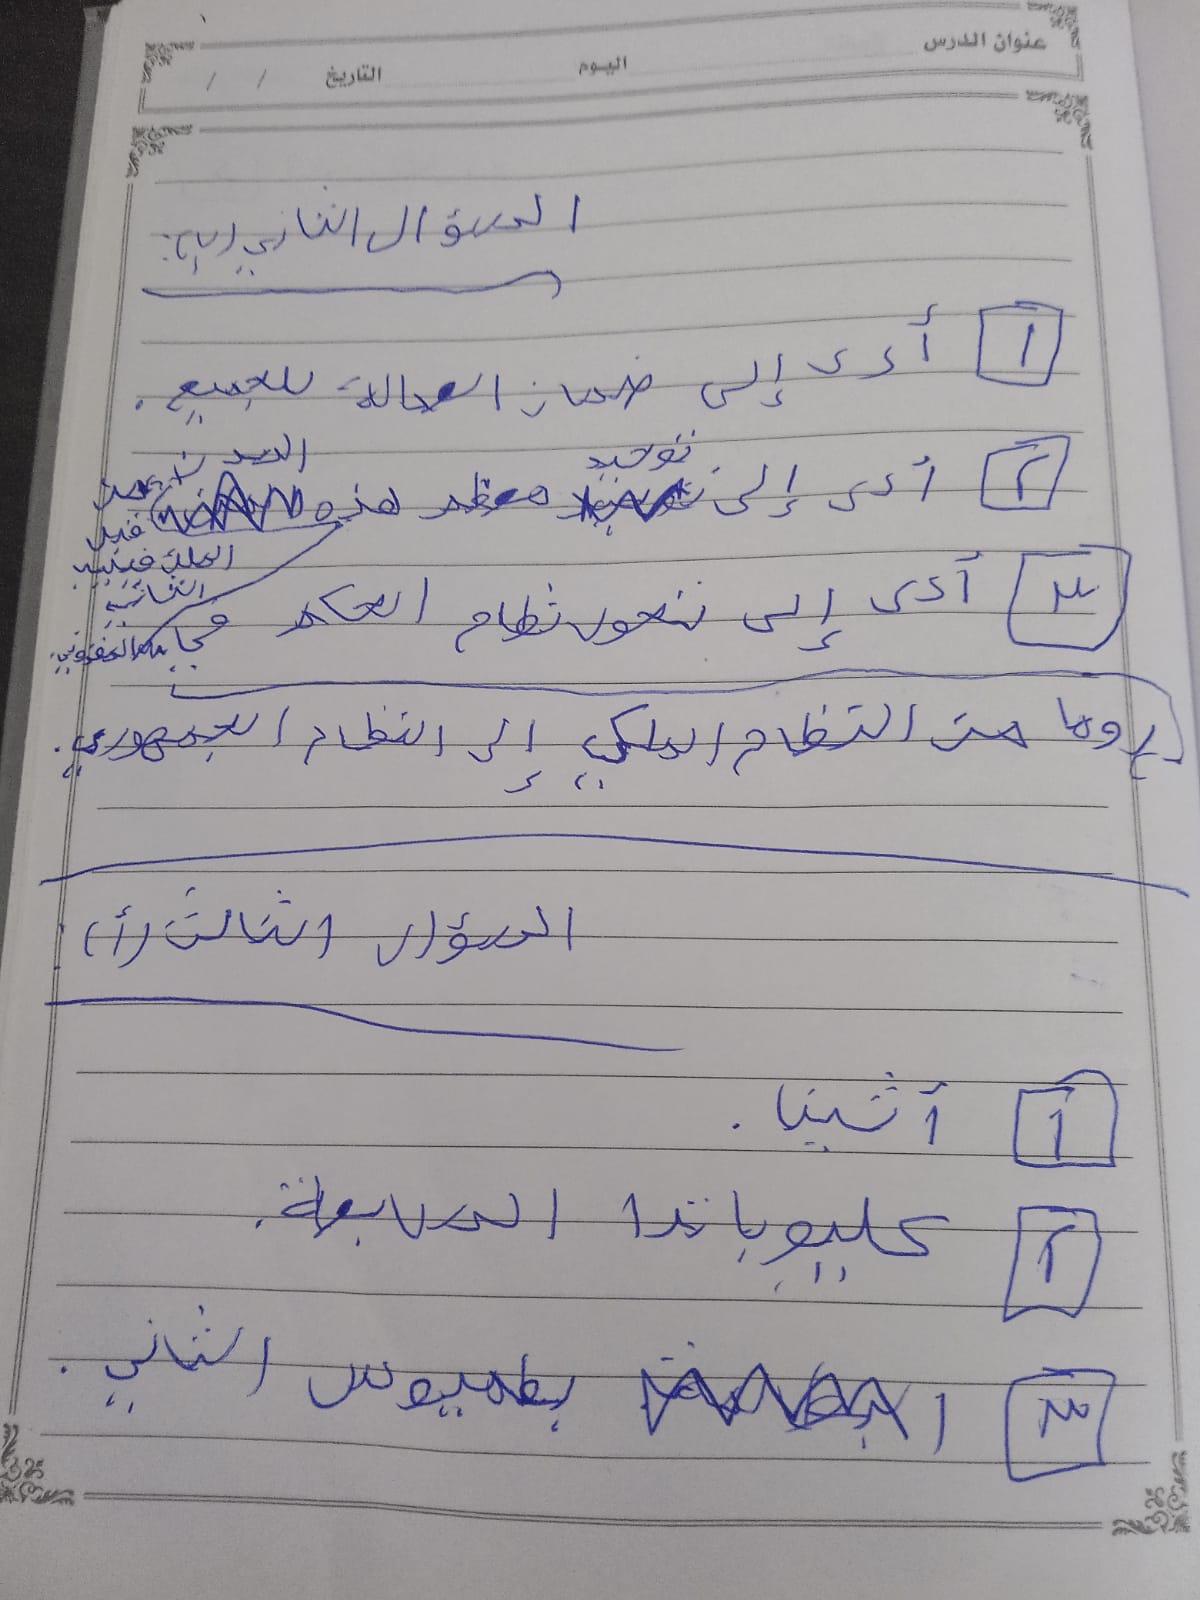 عنوان الدرس
اليوم
التاريخ / /
السؤال الثاني (ب):
١ أدى إلى ضمان العدالة للجميع.
٢ أدى إلى توحيد معظم هذه المدن من قبل الملك فيليب الثاني المقدوني.
٣ أدى إلى تحول نظام الحكم في
روما من النظام الملكي إلى النظام الجمهوري.
السؤال الثالث (أ):
١ أثينا.
٢ كليوباترا السابعة.
٣ بطلميوس الثاني.